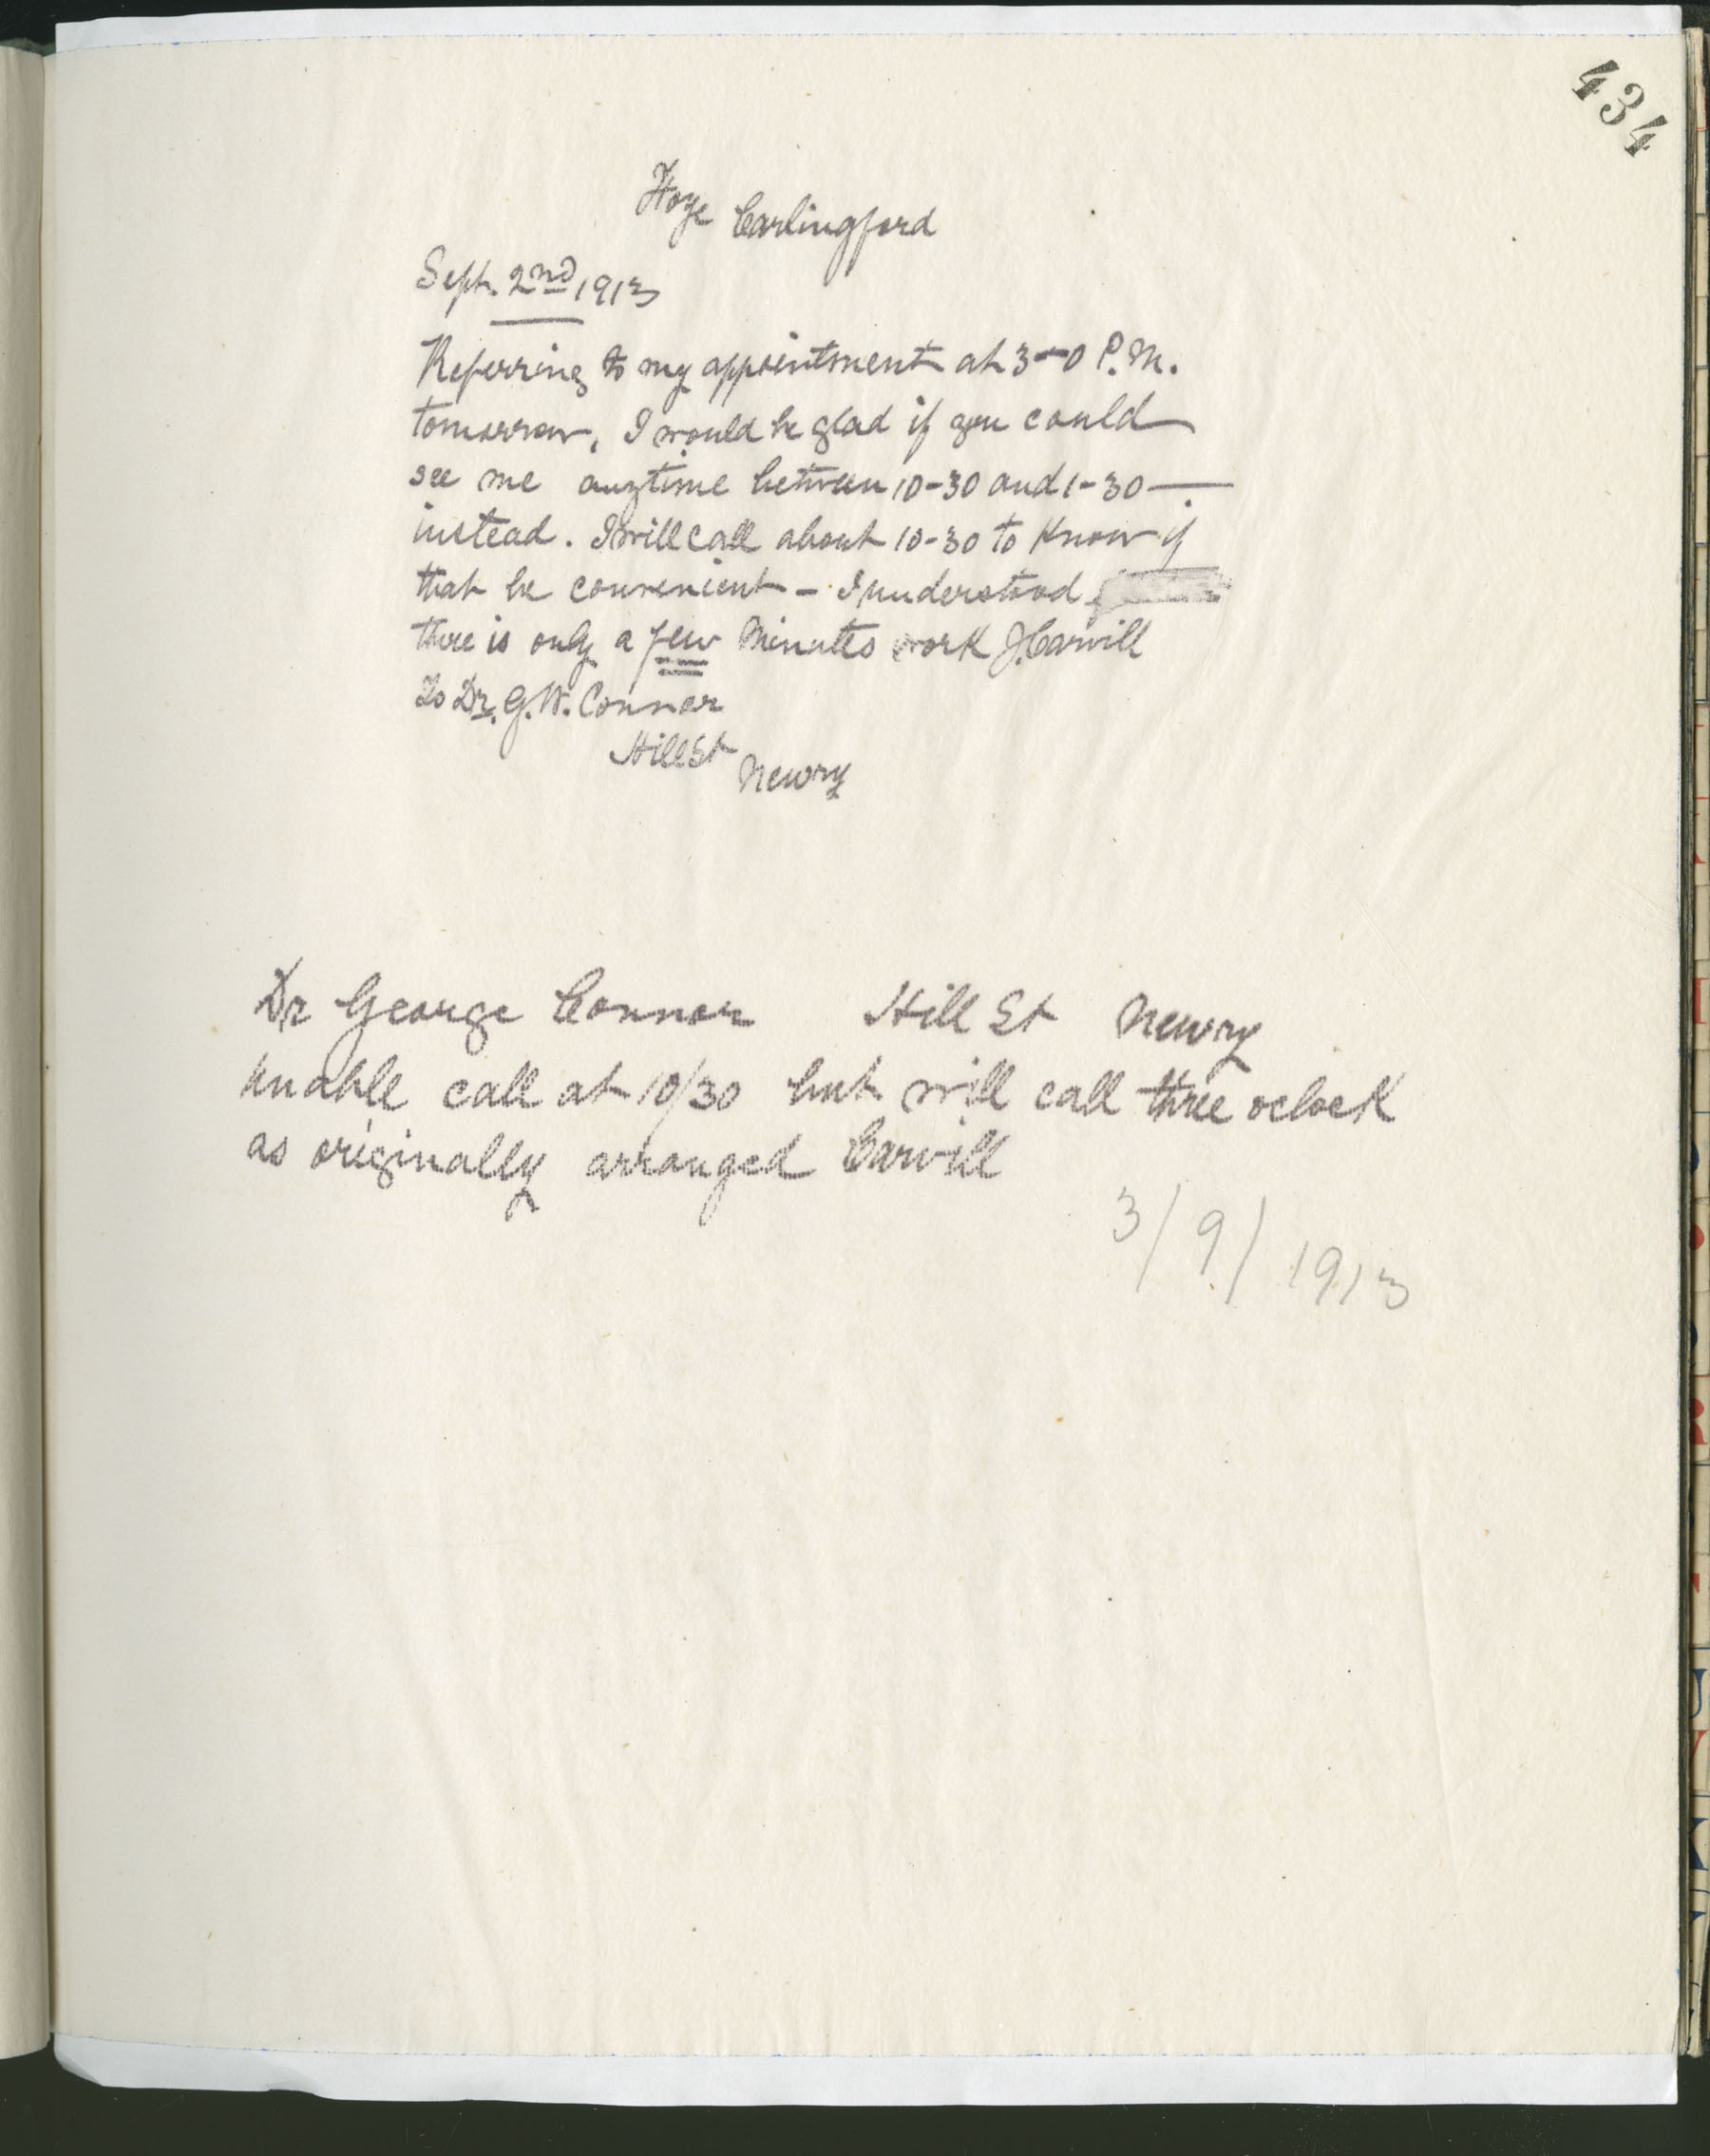 434
Carlingford
Sept. 2nd 1913
Referring to my appointment at 3-0 P.M.
tomorrow, I would be glad if you could
see me anytime between 10-30 and 1-30 —
instead. I will call about 10-30 to know if
that be convenient - I understood
there is only a few minutes work J. Carvill
To Dr. G. W. Connor
Hill St
Newry
Dr George Connor Hill St Newry
unable call at 10/30 but will call three oclock
as originally arranged Carvill
3/9/1913